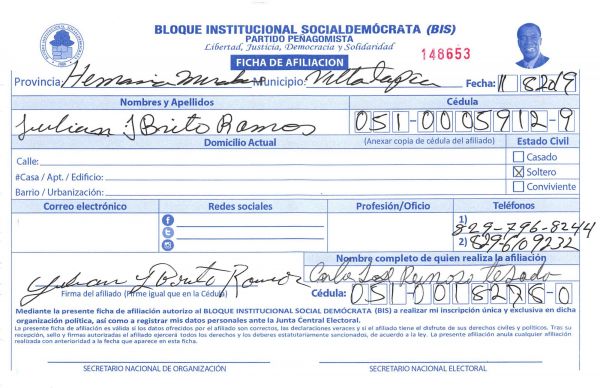 BLOQUE INSTITUCIONAL SOCIALDEMÓCRATA (BIS)
PARTIDO PEÑAGOMISTA
Libertad, Justicia, Democracia y Solidaridad
148653
FICHA DE AFILIACION
Provincia: Hermanas Mirabal Municipio: Villa Tapia Fecha: 11 8 2019
Nombres y Apellidos Cédula
Julian J Brito Ramos 051-0005912-9
Domicilio Actual (Anexar copia de cédula del afiliado) Estado Civil
Calle: Casado
#Casa / Apt. / Edificio: X Soltero
Barrio / Urbanización: Conviviente
Correo electrónico Redes sociales Profesión/Oficio Teléfonos
1) 829-796-8244
2) 829-6109232
Nombre completo de quien realiza la afiliación
Julian J Brito Ramos Carlos José Reynoso
Firma del afiliado (Firme igual que en la Cédula) Cédula: 051-0018278-0
Mediante la presente ficha de afiliación autorizo al BLOQUE INSTITUCIONAL SOCIAL DEMÓCRATA (BIS) a realizar mi inscripción única y exclusiva en dicha
organización política, así como a registrar mis datos personales ante la Junta Central Electoral.
La presente ficha de afiliación es válida si los datos ofrecidos por el afiliado son correctos, las declaraciones veraces y si el afiliado tiene el disfrute de sus derechos civiles y políticos. Tras su
recepción, sello y firmas autorizadas el afiliado ejercerá todos los derechos y los deberes estatutariamente sancionados, de acuerdo a la ley. La presente afiliación anula cualquier afiliación
realizada con anterioridad a la fecha que aparece en esta ficha.
SECRETARIO NACIONAL DE ORGANIZACIÓN SECRETARIO NACIONAL ELECTORAL